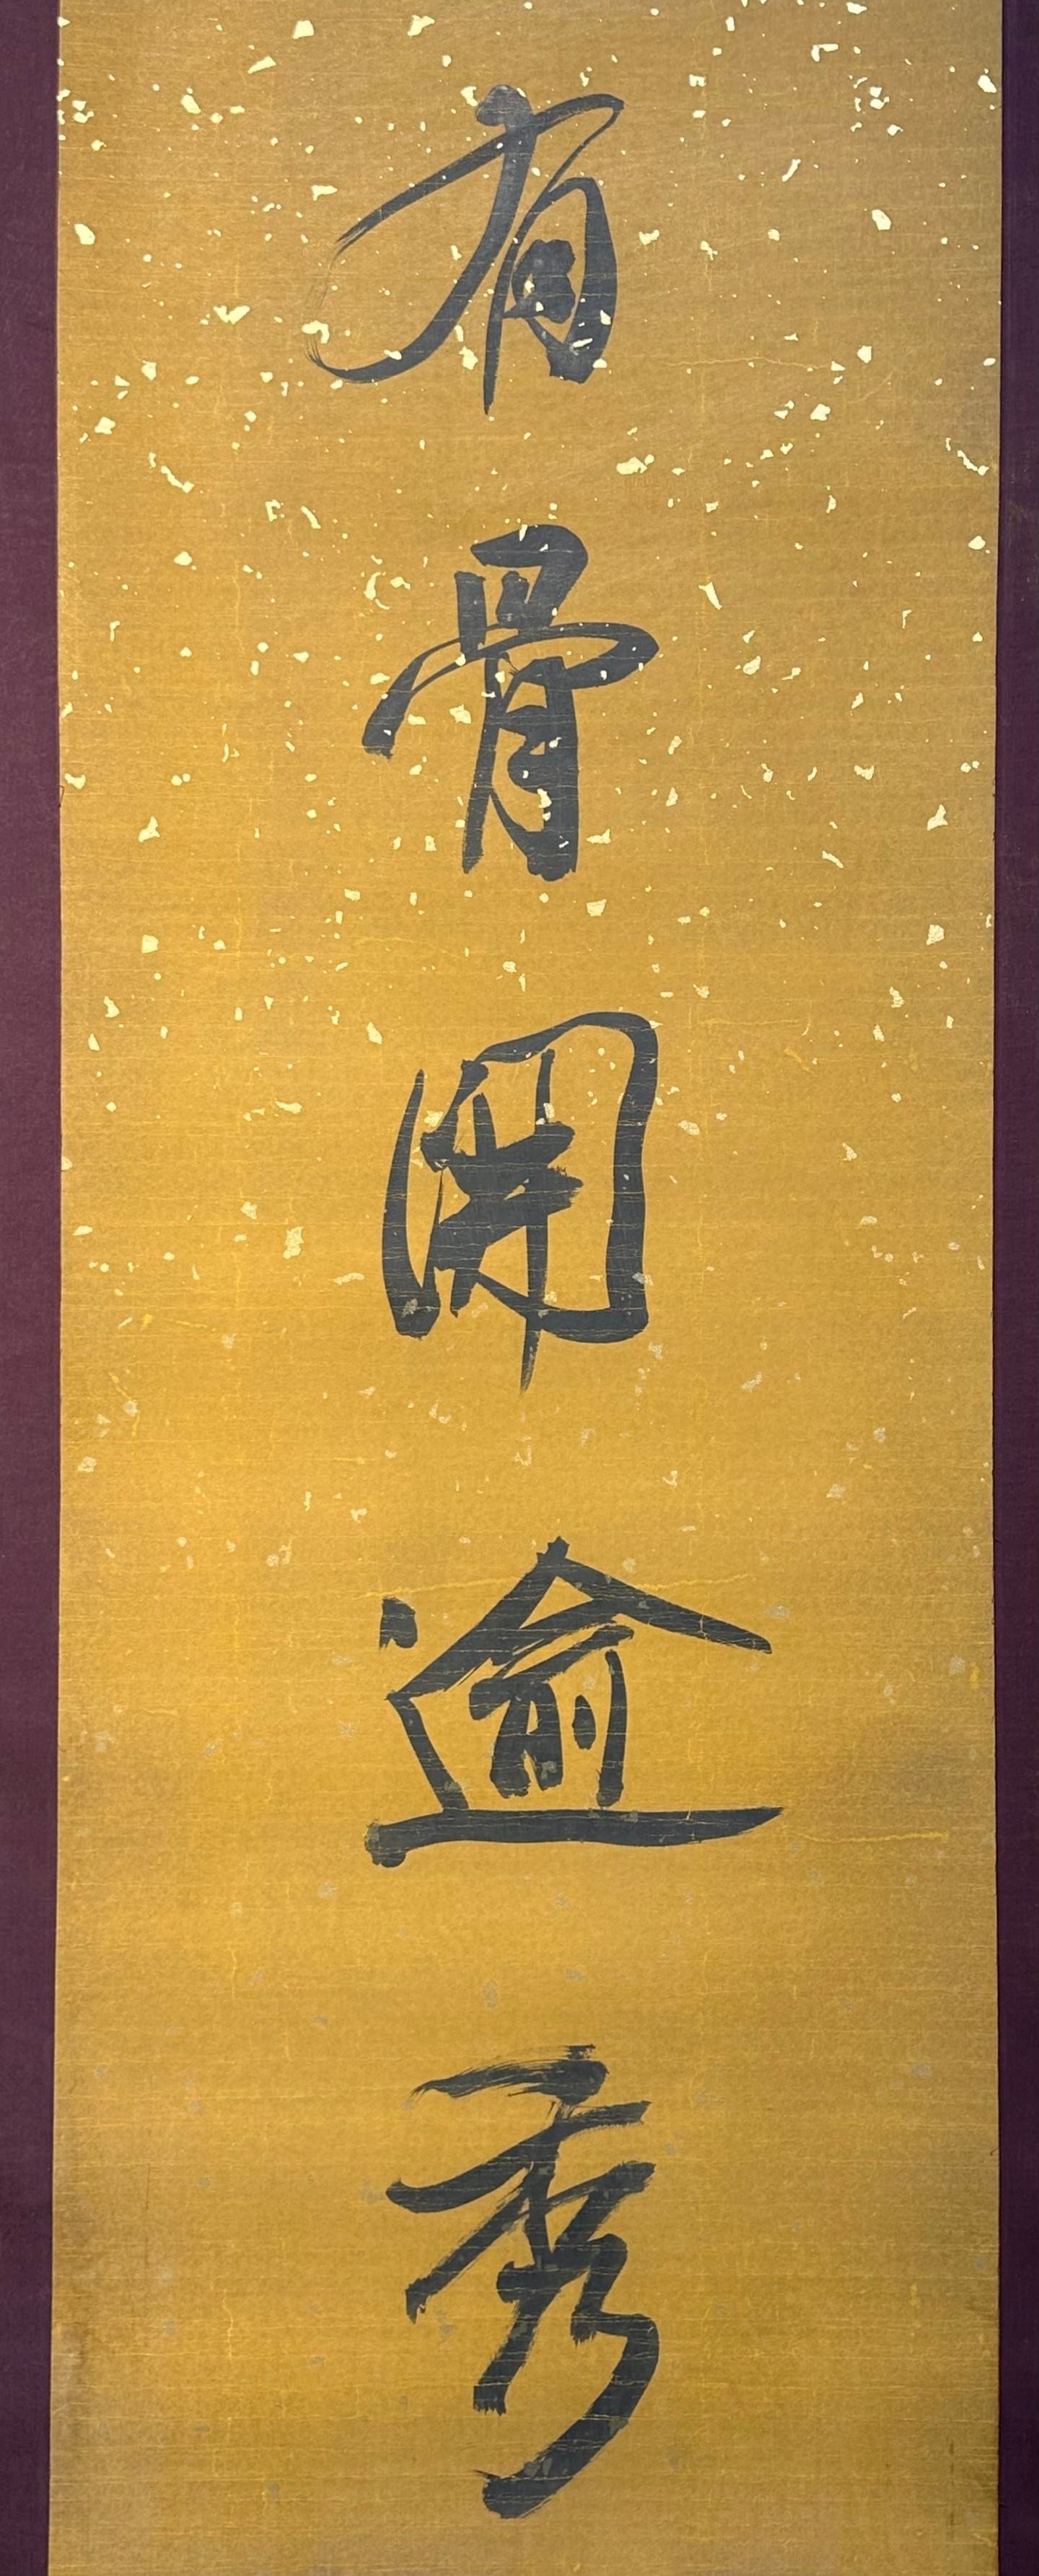 有骨開逾秀